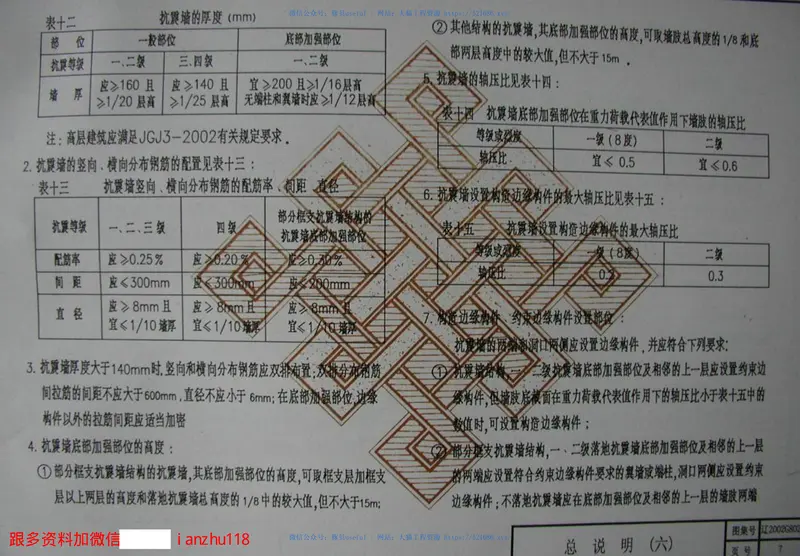 表十二 抗震墙的厚度 (mm)
部 位 一般部位 底部加强部位
抗震等级 一、二级 三、四级 一、二级
墙 厚 应≥160 且 应≥140 且 宜≥200 且≥1/16层高
≥1/20层高 ≥1/25层高 无端柱和翼墙时应≥1/12层高
注: 高层建筑应满足JGJ3-2002有关规定要求.
2. 抗震墙的竖向、横向分布钢筋的配置见表十三:
表十三 抗震墙竖向、横向分布钢筋的配筋率、间距、直径
抗震等级 一、二、三级 四级 部分框支抗震墙结构的
抗震墙底部加强部位
配筋率 应≥0.25% 应≥0.20% 应≥0.30%
间 距 应≤300mm 应≤300mm 应≤200mm
直 径 应≥8mm且 应≥8mm且 应≥8mm且
宜≤1/10墙厚 宜≤1/10墙厚 宜≤1/10墙厚
3. 抗震墙厚度大于140mm时,竖向和横向分布钢筋应双排布置;双排分布钢筋
间拉筋的间距不应大于600mm,直径不应小于 6mm;在底部加强部位,边缘
构件以外的拉筋间距应适当加密
4. 抗震墙底部加强部位的高度:
①部分框支抗震墙结构的抗震墙,其底部加强部位的高度,可取框支层加框支
层以上两层的高度和落地抗震墙总高度的1/8中的较大值,但不大于15m;
② 其他结构的抗震墙,其底部加强部位的高度,可取墙肢总高度的1/8和底
部两层高度中的较大值,但不大于15m.
5. 抗震墙的轴压比见表十四:
表十四 抗震墙底部加强部位在重力荷载代表值作用下墙肢的轴压比
等级或烈度 一级 (8度) 二级
轴压比 宜≤0.5 宜≤0.6
6. 抗震墙设置构造边缘构件的最大轴压比见表十五:
表十五 抗震墙设置构造边缘构件的最大轴压比
等级或烈度 一级 (8度) 二级
轴压比 0.3
7. 构造边缘构件、约束边缘构件设置部位:
抗震墙的两端和洞口两侧应设置边缘构件,并应符合下列要求:
① 抗震墙结构,一、二级抗震墙底部加强部位及相邻的上一层应设置约束边
缘构件,但墙肢底截面在重力荷载代表值作用下的轴压比小于表十五中的
数值时,可设置构造边缘构件;
② 部分框支抗震墙结构,一、二级落地抗震墙底部加强部位及相邻的上一层
的两端应设置符合约束边缘构件要求的翼墙或端柱,洞口两侧应设置约束
缘构件;不落地抗震墙应在底部加强部位及相邻的上一层的墙肢两端
总 说 明 (六)
图集号 辽2002G802
号 7
跟多资料加微信 i anzhu118